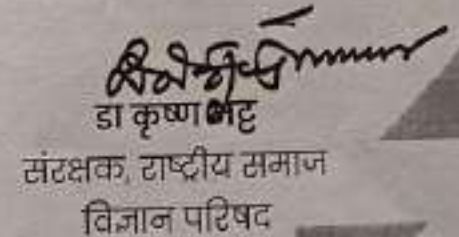 डा कृष्ण भट्ट
संरक्षक, राष्ट्रीय समाज
विज्ञान परिषद